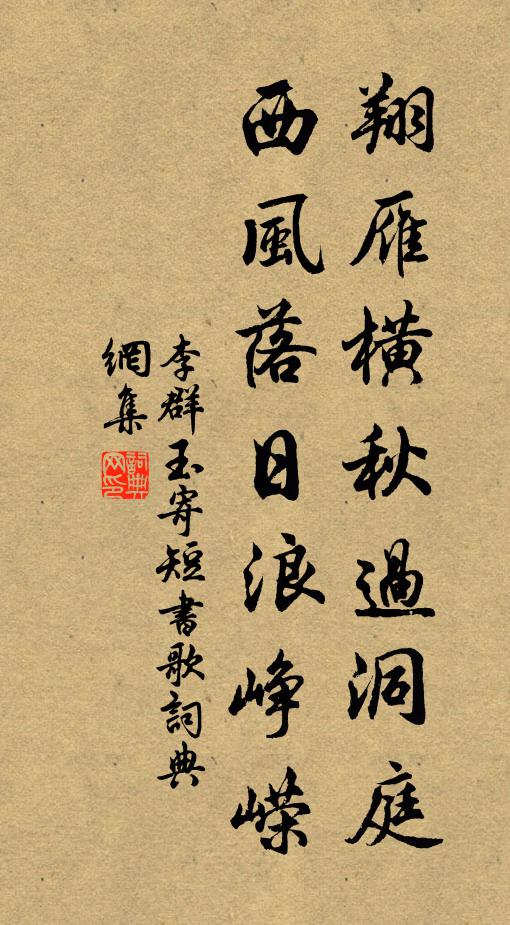 翔雁橫秋過洞庭
西風落日浪崢嶸
李群玉寄短書歌詞典
網集
詞典網印